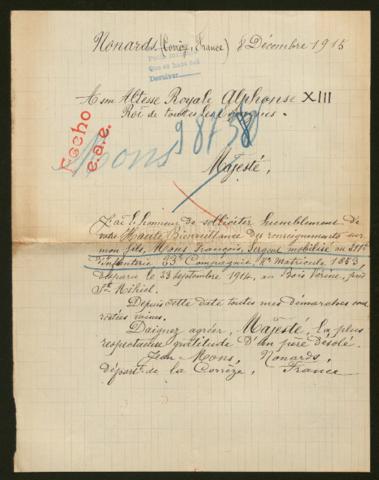 Nonards (Corrèze, France) 8 Décembre 1915
A son Altesse Royale Alphonse XIII
Roi de toutes les Espagnes.
Fecho
e.a.e.
Mons
Majesté,
J'ai l'honneur de solliciter humblement de
votre Haute Bienveillance des renseignements sur
mon fils, Mons François, Sergent mobilisé au
d'infanterie Compagnie, Nº Matricule 1853
disparu le 23 septembre 1914, au Bois près
St Mihiel.
Depuis cette date toutes mes démarches sont
restées vaines.
Daignez agréer, Majesté, la plus
respectueuse gratitude d'un père désolé.
Jean Mons, Nonards,
Départt de la Corrèze, France